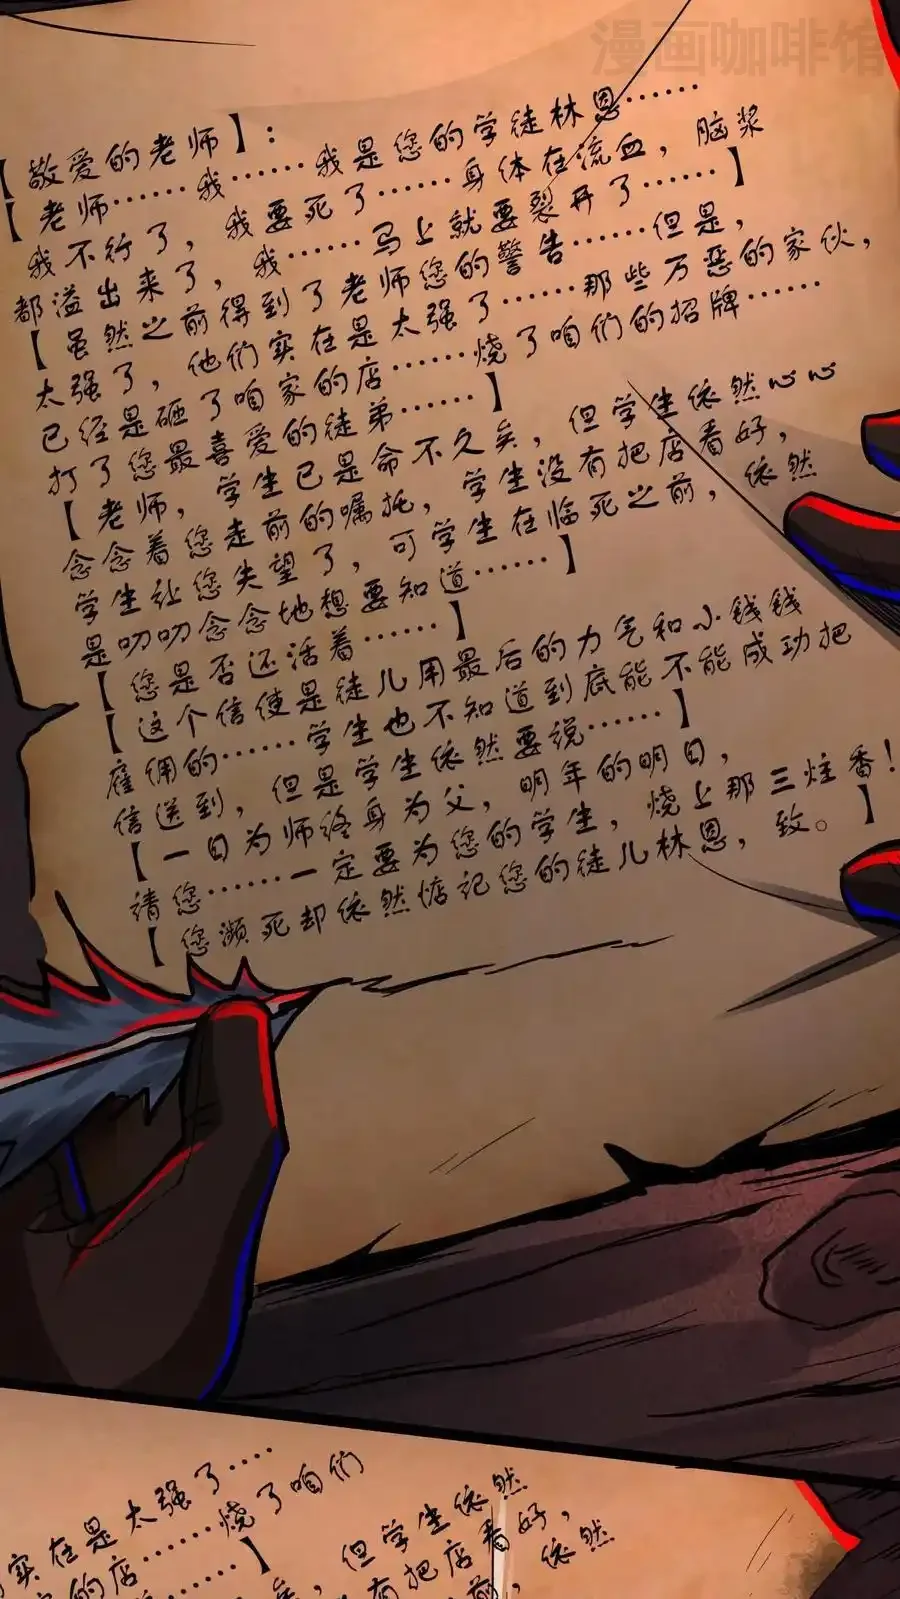 漫画咖啡馆
【敬爱的老师】：
【老师……我……我是您的学徒林恩……
我不行了，我要死了……身体在流血，脑浆
都溢出来了，我……马上就要裂开了……】
【虽然之前得到了老师您的警告……但是，
太强了，他们实在是太强了……那些万恶的家伙，
已经是砸了咱家的店……烧了咱们的招牌……
打了您最喜爱的徒弟……】
【老师，学生已是命不久矣，但学生依然心心
念念着您走前的嘱托，学生没有把店看好，
学生让您失望了，可学生在临死之前，依然
是叨叨念念地想要知道……】
【您是否还活着……】
【这个信使是徒儿用最后的力气和小钱钱
雇佣的……学生也不知道到底能不能成功把
信送到，但是学生依然要说……】
【一日为师终身为父，明年的明日，
请您……一定要为您的学生，烧上那三炷香！】
【您濒死却依然惦记您的徒儿林恩，致。
实在是太强了……
的店……烧了咱们
……】
矣，但学生依然
有把店看好，
前，依然